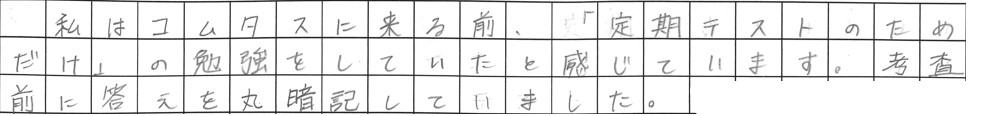 私はコムタスに来る前、「定期テストのため
だけ」の勉強をしていたと感じています。考査
前に答えを丸暗記していました。